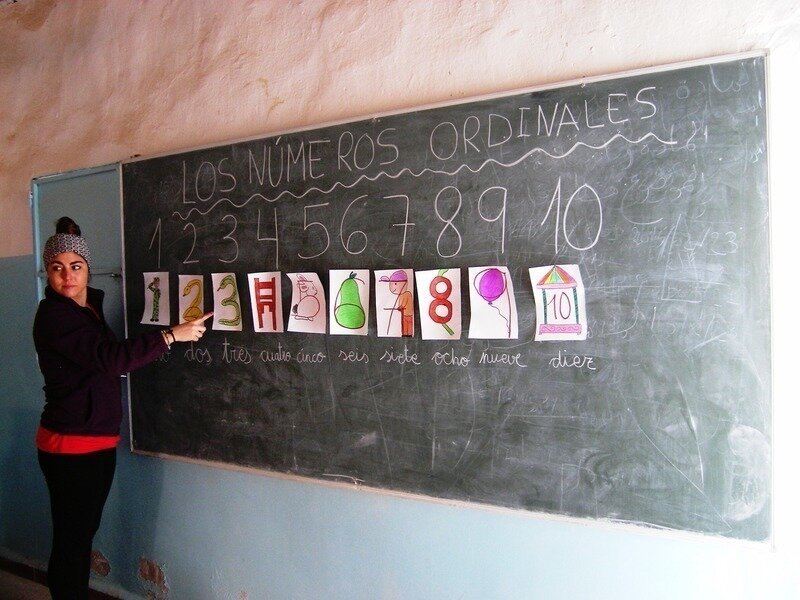 LOS NÚMEROS ORDINALES
1 2 3 4 5 6 7 8 9 10
2 3 8 10
dos tres cuatro cinco seis siete ocho nueve diez